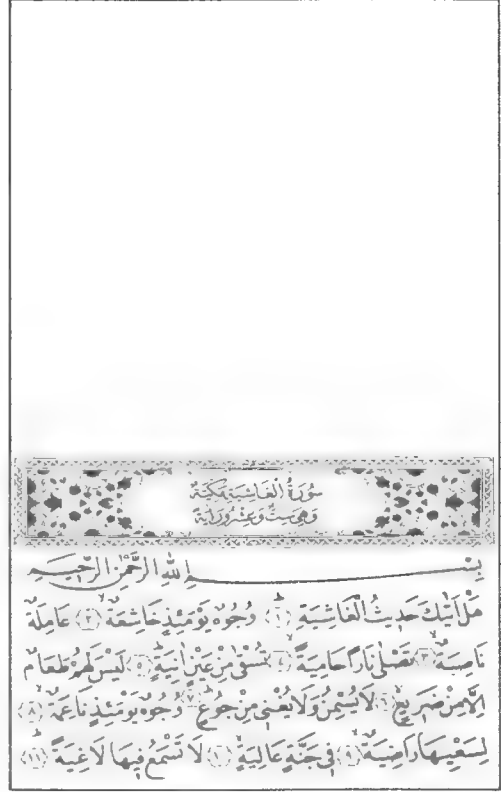 سُورَةُ الْغَاشِيَةِ مَكِّيَّةٌ
وَهِيَ سِتٌّ وَعِشْرُونَ اٰيَةً
بِسْمِ اللّٰهِ الرَّحْمٰنِ الرَّحِيمِ
هَلْ اَتٰيكَ حَدِيثُ الْغَاشِيَةِ ﴿١﴾ وُجُوهٌ يَوْمَئِذٍ خَاشِعَةٌ ﴿٢﴾ عَامِلَةٌ
نَاصِبَةٌ ﴿٣﴾ تَصْلٰى نَارًا حَامِيَةً ﴿٤﴾ تُسْقٰى مِنْ عَيْنٍ اٰنِيَةٍ ﴿٥﴾ لَيْسَ لَهُمْ طَعَامٌ
اِلَّا مِنْ ضَرِيعٍ ﴿٦﴾ لَا يُسْمِنُ وَلَا يُغْنِى مِنْ جُوعٍ ﴿٧﴾ وُجُوهٌ يَوْمَئِذٍ نَاعِمَةٌ ﴿٨﴾
لِسَعْيِهَا رَاضِيَةٌ ﴿٩﴾ فِى جَنَّةٍ عَالِيَةٍ ﴿١٠﴾ لَا تَسْمَعُ فِيهَا لَاغِيَةً ﴿١١﴾